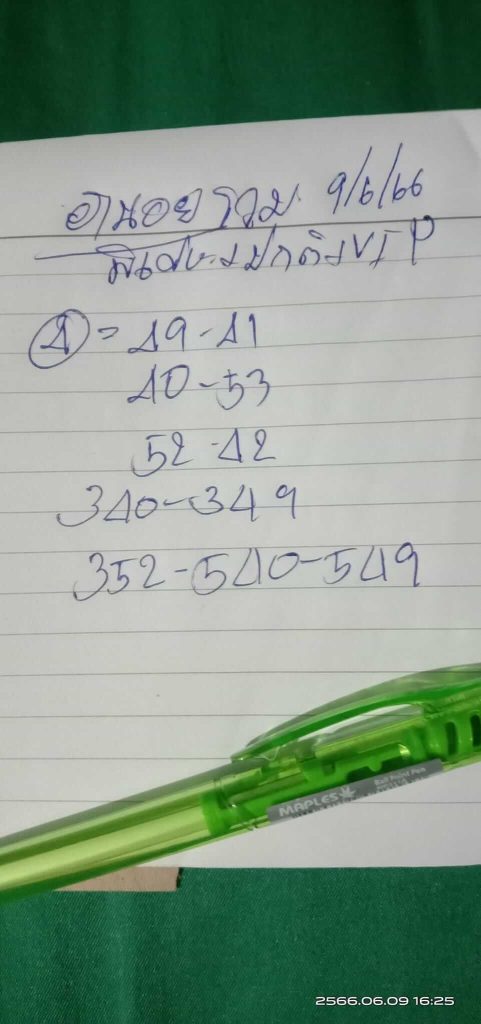 ฮานอยรวม 9/6/66
พิเศษ.ปกติ.VIP
4 = 49-41
40-53
52-42
340-349
352-540-549
MAPLES
2566.06.09 16:25